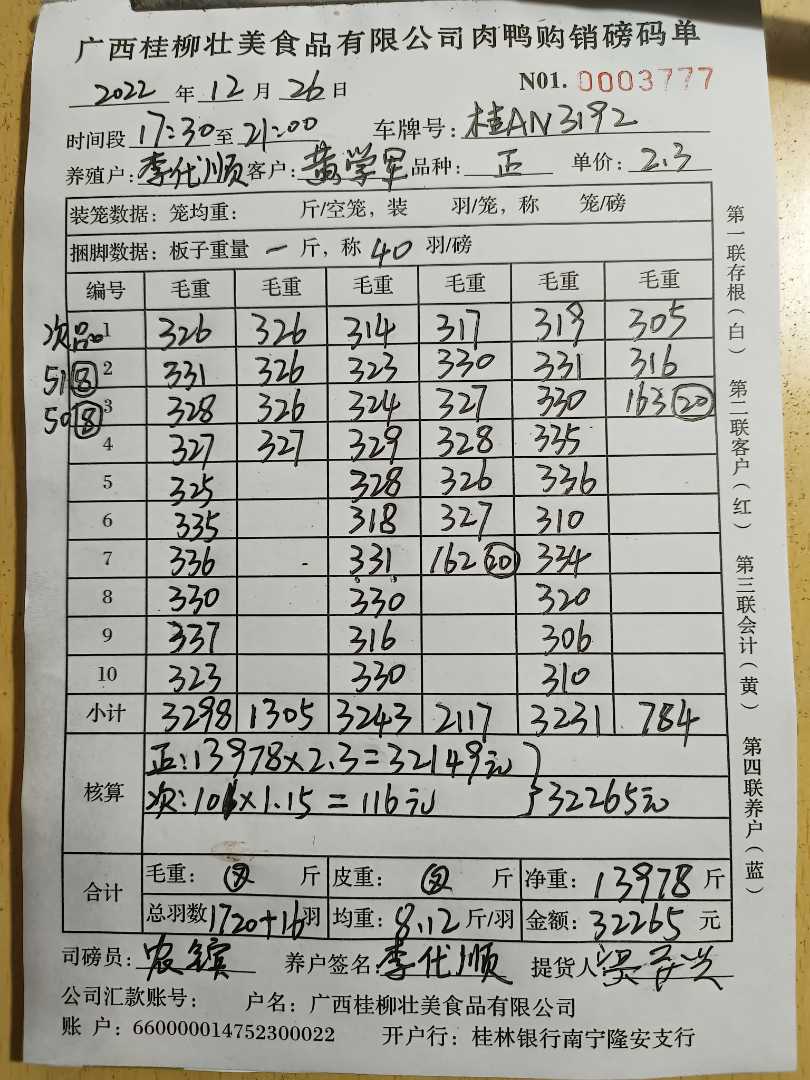 广西桂柳壮美食品有限公司肉鸭购销磅码单
2022 年 12 月 26 日 N01. 0003777
时间段 17:30 至 21:00 车牌号: 桂AN3192
养殖户: 李代顺 客户: 黄学军 品种: 正 单价: 2.3
装笼数据: 笼均重: 斤/空笼, 装 羽/笼, 称 笼/磅
捆脚数据: 板子重量 一 斤, 称 40 羽/磅
编号 毛重 毛重 毛重 毛重 毛重 毛重
次品 1 326 326 314 317 319 305
51⑧ 2 331 326 323 330 331 316
50⑧ 3 328 326 324 327 330 163⑳
4 327 327 329 328 335
5 325 328 326 336
6 335 318 327 310
7 336 331 162⑳ 334
8 330 330 320
9 337 316 306
10 323 330 310
小计 3298 1305 3243 2117 3231 784
核算
正:13978×2.3=32149元
次:101×1.15=116元 } 32265元
合计
毛重: 斤 皮重: 斤 净重: 13978 斤
总羽数 1720+16 羽 均重: 8.12 斤/羽 金额: 32265 元
司磅员: 农镔 养户签名: 李代顺 提货人:
公司汇款账号: 户名: 广西桂柳壮美食品有限公司
账 户: 660000014752300022 开户行: 桂林银行南宁隆安支行
第一联存根(白) 第二联客户(红) 第三联会计(黄) 第四联养户(蓝)